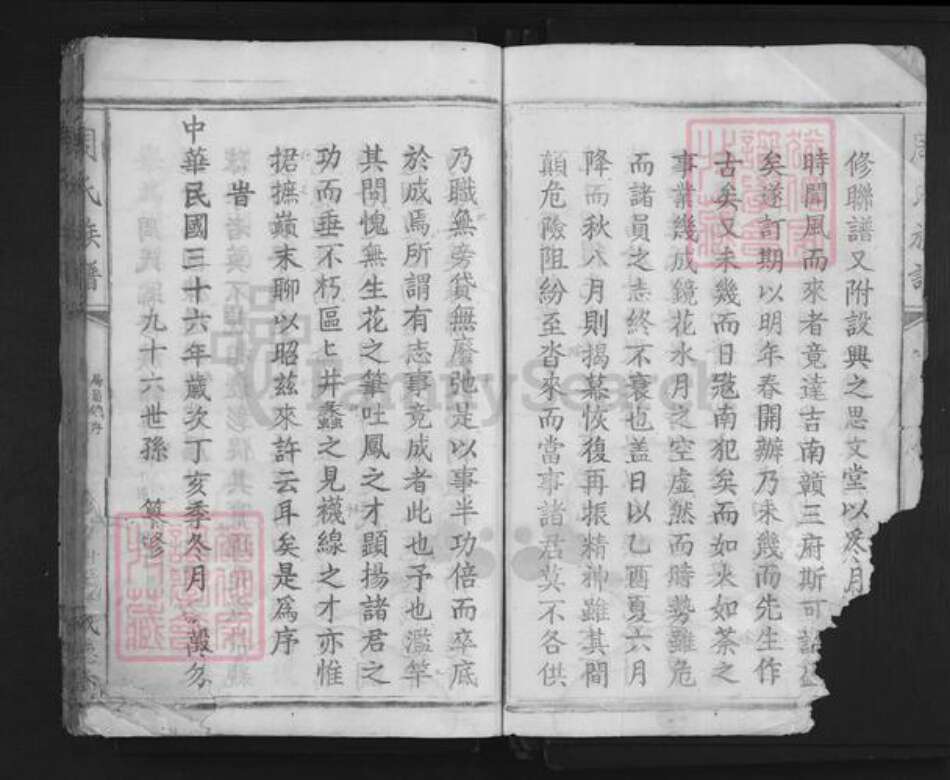 修聯譜又附設興之思文堂以冬月
時聞風而來者竟達吉南贛三府斯可
矣遂訂期以明年春開辦乃未幾而先生作
古矣又未幾而日寇南犯矣而如火如荼之
事業幾成鏡花水月之空虛然而時勢雖危
而諸員之志終不衰也蓋日以乙酉夏六月
降而秋八月則揭幕恢復再振精神雖其間
顛危險阻紛至沓來而當事諸君莫不各供
乃職無旁貸無廢弛是以事半功倍而卒底
於成焉所謂有志事竟成者此也予也濫竽
其間愧無生花之筆吐鳳之才顯揚諸君之
功而垂不朽區匕井蠡之見襪線之才亦惟
捃摭巔末聊以昭茲來許云耳矣是為序
旹
中華民國三十六年歲次丁亥季冬月 穀
九十六世孫 纂修
周氏族譜
FamilySearch